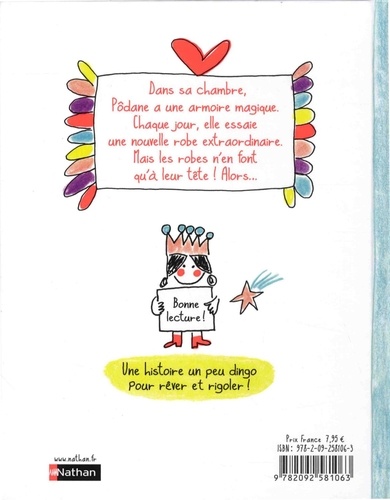 Dans sa chambre,
Pôdane a une armoire magique.
Chaque jour, elle essaie
une nouvelle robe extraordinaire.
Mais les robes n'en font
qu'à leur tête ! Alors...
Bonne
lecture !
Une histoire un peu dingo
pour rêver et rigoler !
www.nathan.fr
Nathan
Prix France 7,95 €
ISBN : 978-2-09-258106-3
9 782092 581063